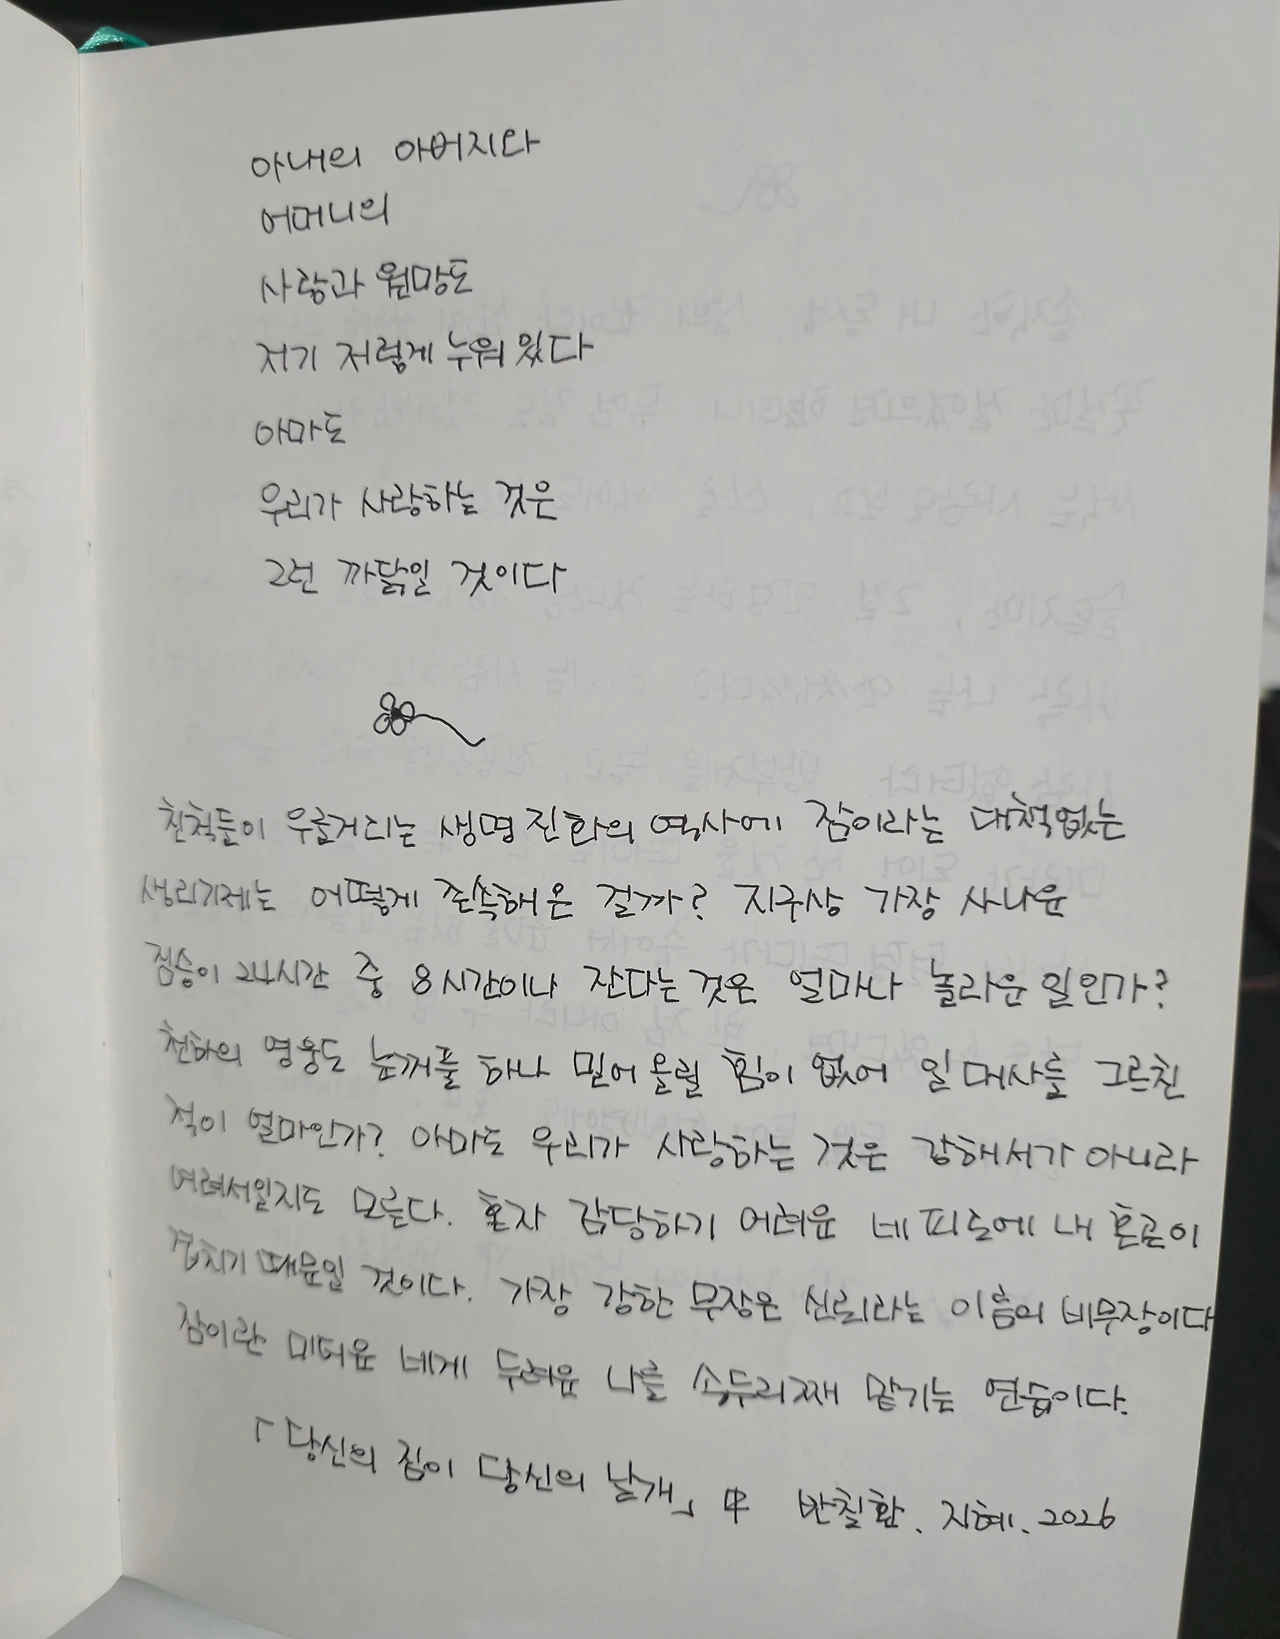 아내의 아버지와
어머니의
사랑과 원망도
저기 저렇게 누워 있다
아마도
우리가 사랑하는 것은
그런 까닭일 것이다
친척들이 우글거리는 생명 진화의 역사에 잠이라는 대책없는
생리기제는 어떻게 존속해온 걸까? 지구상 가장 사나운
짐승이 24시간 중 8시간이나 잔다는 것은 얼마나 놀라운 일인가?
천하의 영웅도 눈꺼풀 하나 밀어 올릴 힘이 없어 일 대사를 그르친
적이 얼마인가? 아마도 우리가 사랑하는 것은 강해서가 아니라
여려서일지도 모른다. 혼자 감당하기 어려운 네 피로에 내 혼곤이
겹치기 때문일 것이다. 가장 강한 무장은 신뢰라는 이름의 비무장이다
잠이란 미더운 네게 두려운 나를 송두리째 맡기는 연습이다.
「당신의 짐이 당신의 날개」 中 반칠환. 지혜. 2026